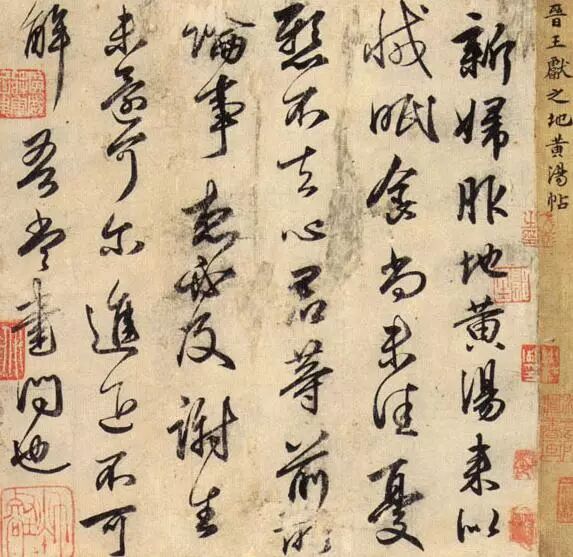 晉王獻之地黄湯帖
新婦服地黄湯來似
減眠食尚未佳憂
懸不去心君等前所
論事想必及謝生
未還何爾進退不可
解吾當書問也